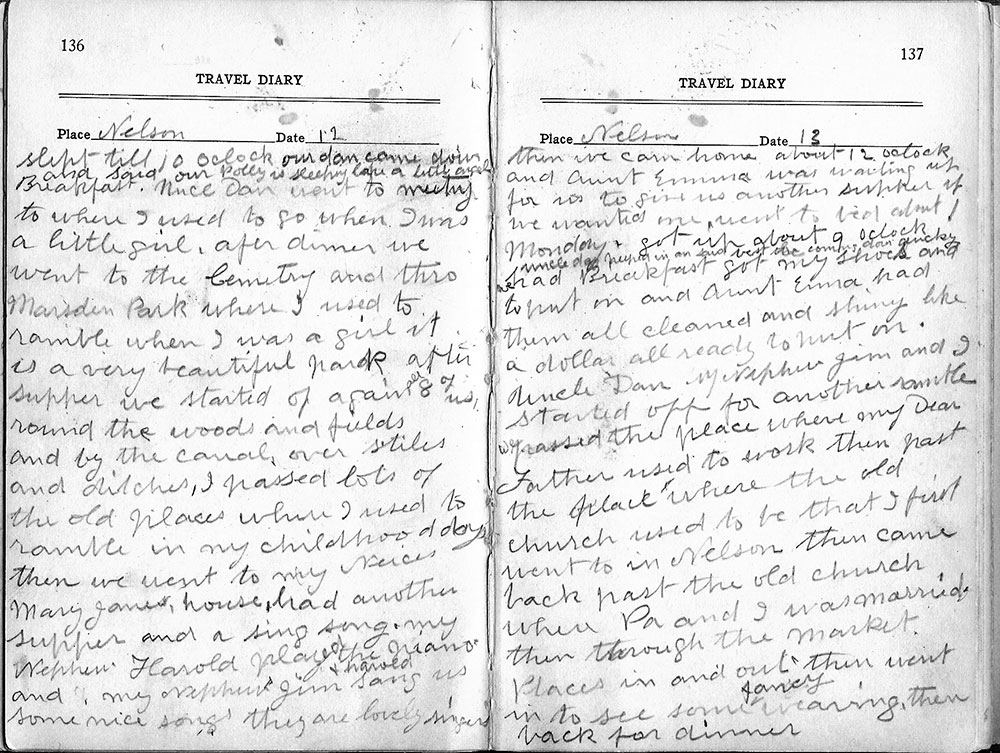 136
TRAVEL DIARY
Place Nelson Date 12
slept till 10 oclock our dan came down
and said our Polly is sleeping like a little angel
Breakfast. Uncle Dan went to meeting
to where I used to go when I was
a little girl, afer dinner we
went to the Cemetry and thro
Marsden Park where I used to
ramble when I was a girl it
is a very beautiful park after
supper we started of again 8 of us,
round the woods and fields
and by the canal, over stiles
and ditches, I passed lots of
the old places where I used to
ramble in my childhood days
then we went to my Neices
Mary Janes, house, had another
supper and a sing song. my
Nephew Harold played the piano
& harold
and my Nephew Jim sang us
some nice songs they are lovely singers
137
TRAVEL DIARY
Place Nelson Date 13
then we cam home about 12 oclock
and Aunt Emma was waiting up
for us to give us another supper if
we wanted one, went to bed about 1
Monday. got up about 9 oclock
uncle dan peeped in an said
we had Breakfast got my shoes and
to put on and Aunt Emma had
them all cleaned and shiny like
a dollar all ready to put on.
Uncle Dan Nephew Jim and I
started off for another ramble
we passed the place where my Dear
Father used to work then past
the place where the old
church used to be that I first
went to in Nelson then came
back past the old church
where Pa and I was married.
then through the market.
Places in and out then went
fancy
in to see some weaving, then
back for dinner